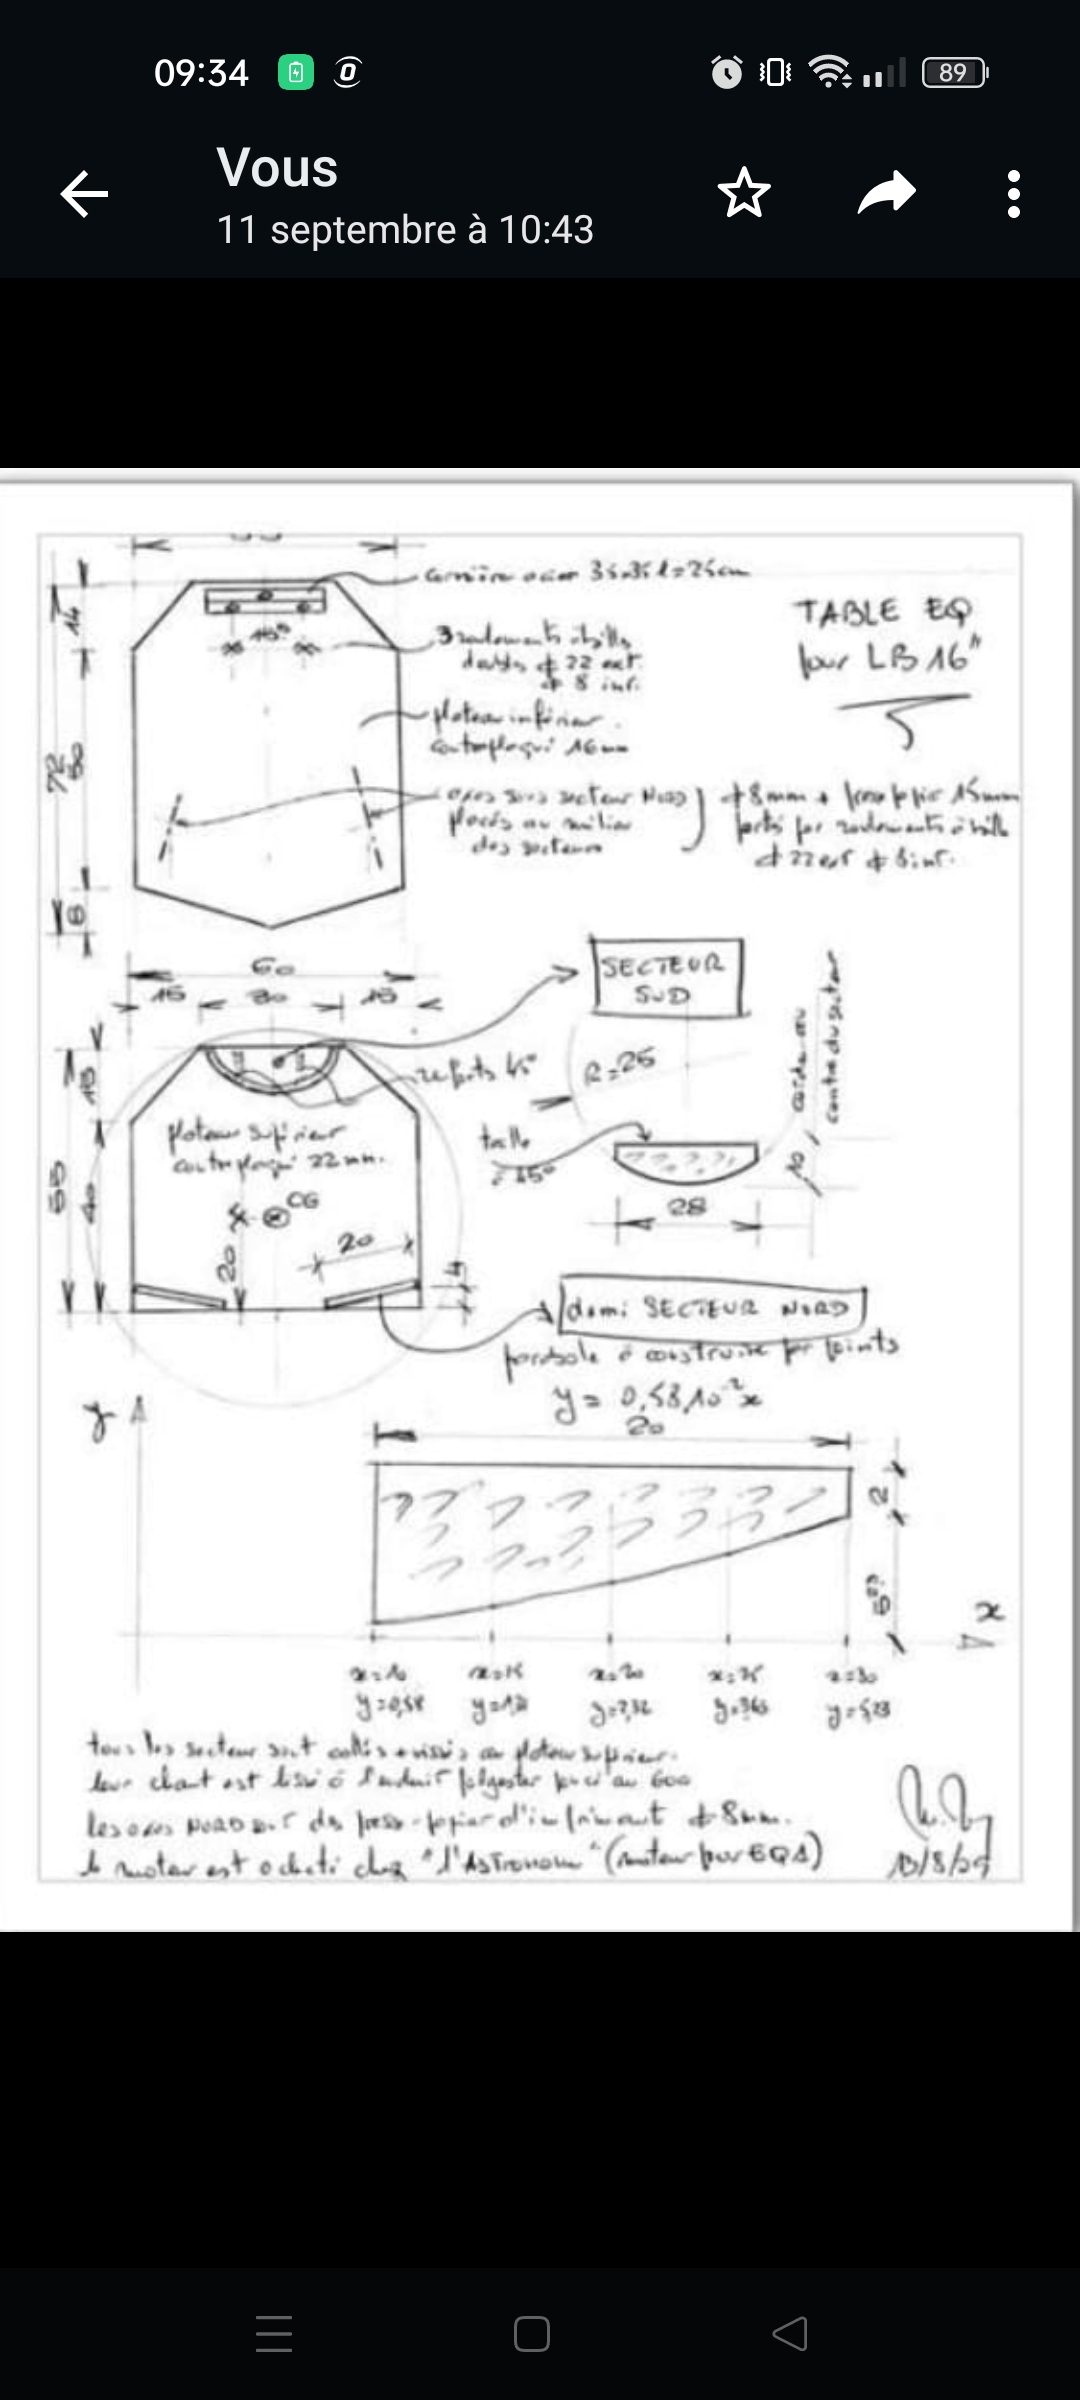 09:34
89
Vous
11 septembre à 10:43
cornière acier 35x35 l=25cm
14
TABLE EQ
pour LB 16"
3 roulements à billes
ϕ 22 ext.
ϕ 8 int.
plateau inférieur
contreplaqué 16mm
72
axes sous secteur NORD
placés au milieu
des secteurs
ϕ8mm + 15mm
portés par roulements à bille
ϕ 22 ext ϕ 8 int.
8
60
15 30 15
SECTEUR
SUD
R=25
renforts 45°
15
plateau supérieur
contreplaqué 22mm.
taille
à 45°
corde au
centre du secteur
10
55
40
CG
28
20
20
4
demi SECTEUR NORD
parabole à construire par points
y = 0,58.10⁻² x
20
y
2
x
x=10 x=15 x=20 x=25 x=30
y=0,58 y=2,32
tous les secteur sont collés + vissés au plateau supérieur.
leur chant est lissé à l'enduit polyester poncé au 600
les axes NORD sont des d'imprimant ϕ 8mm.
le moteur est acheté chez "l'ASTRONOM" (moteur pour EQ1)